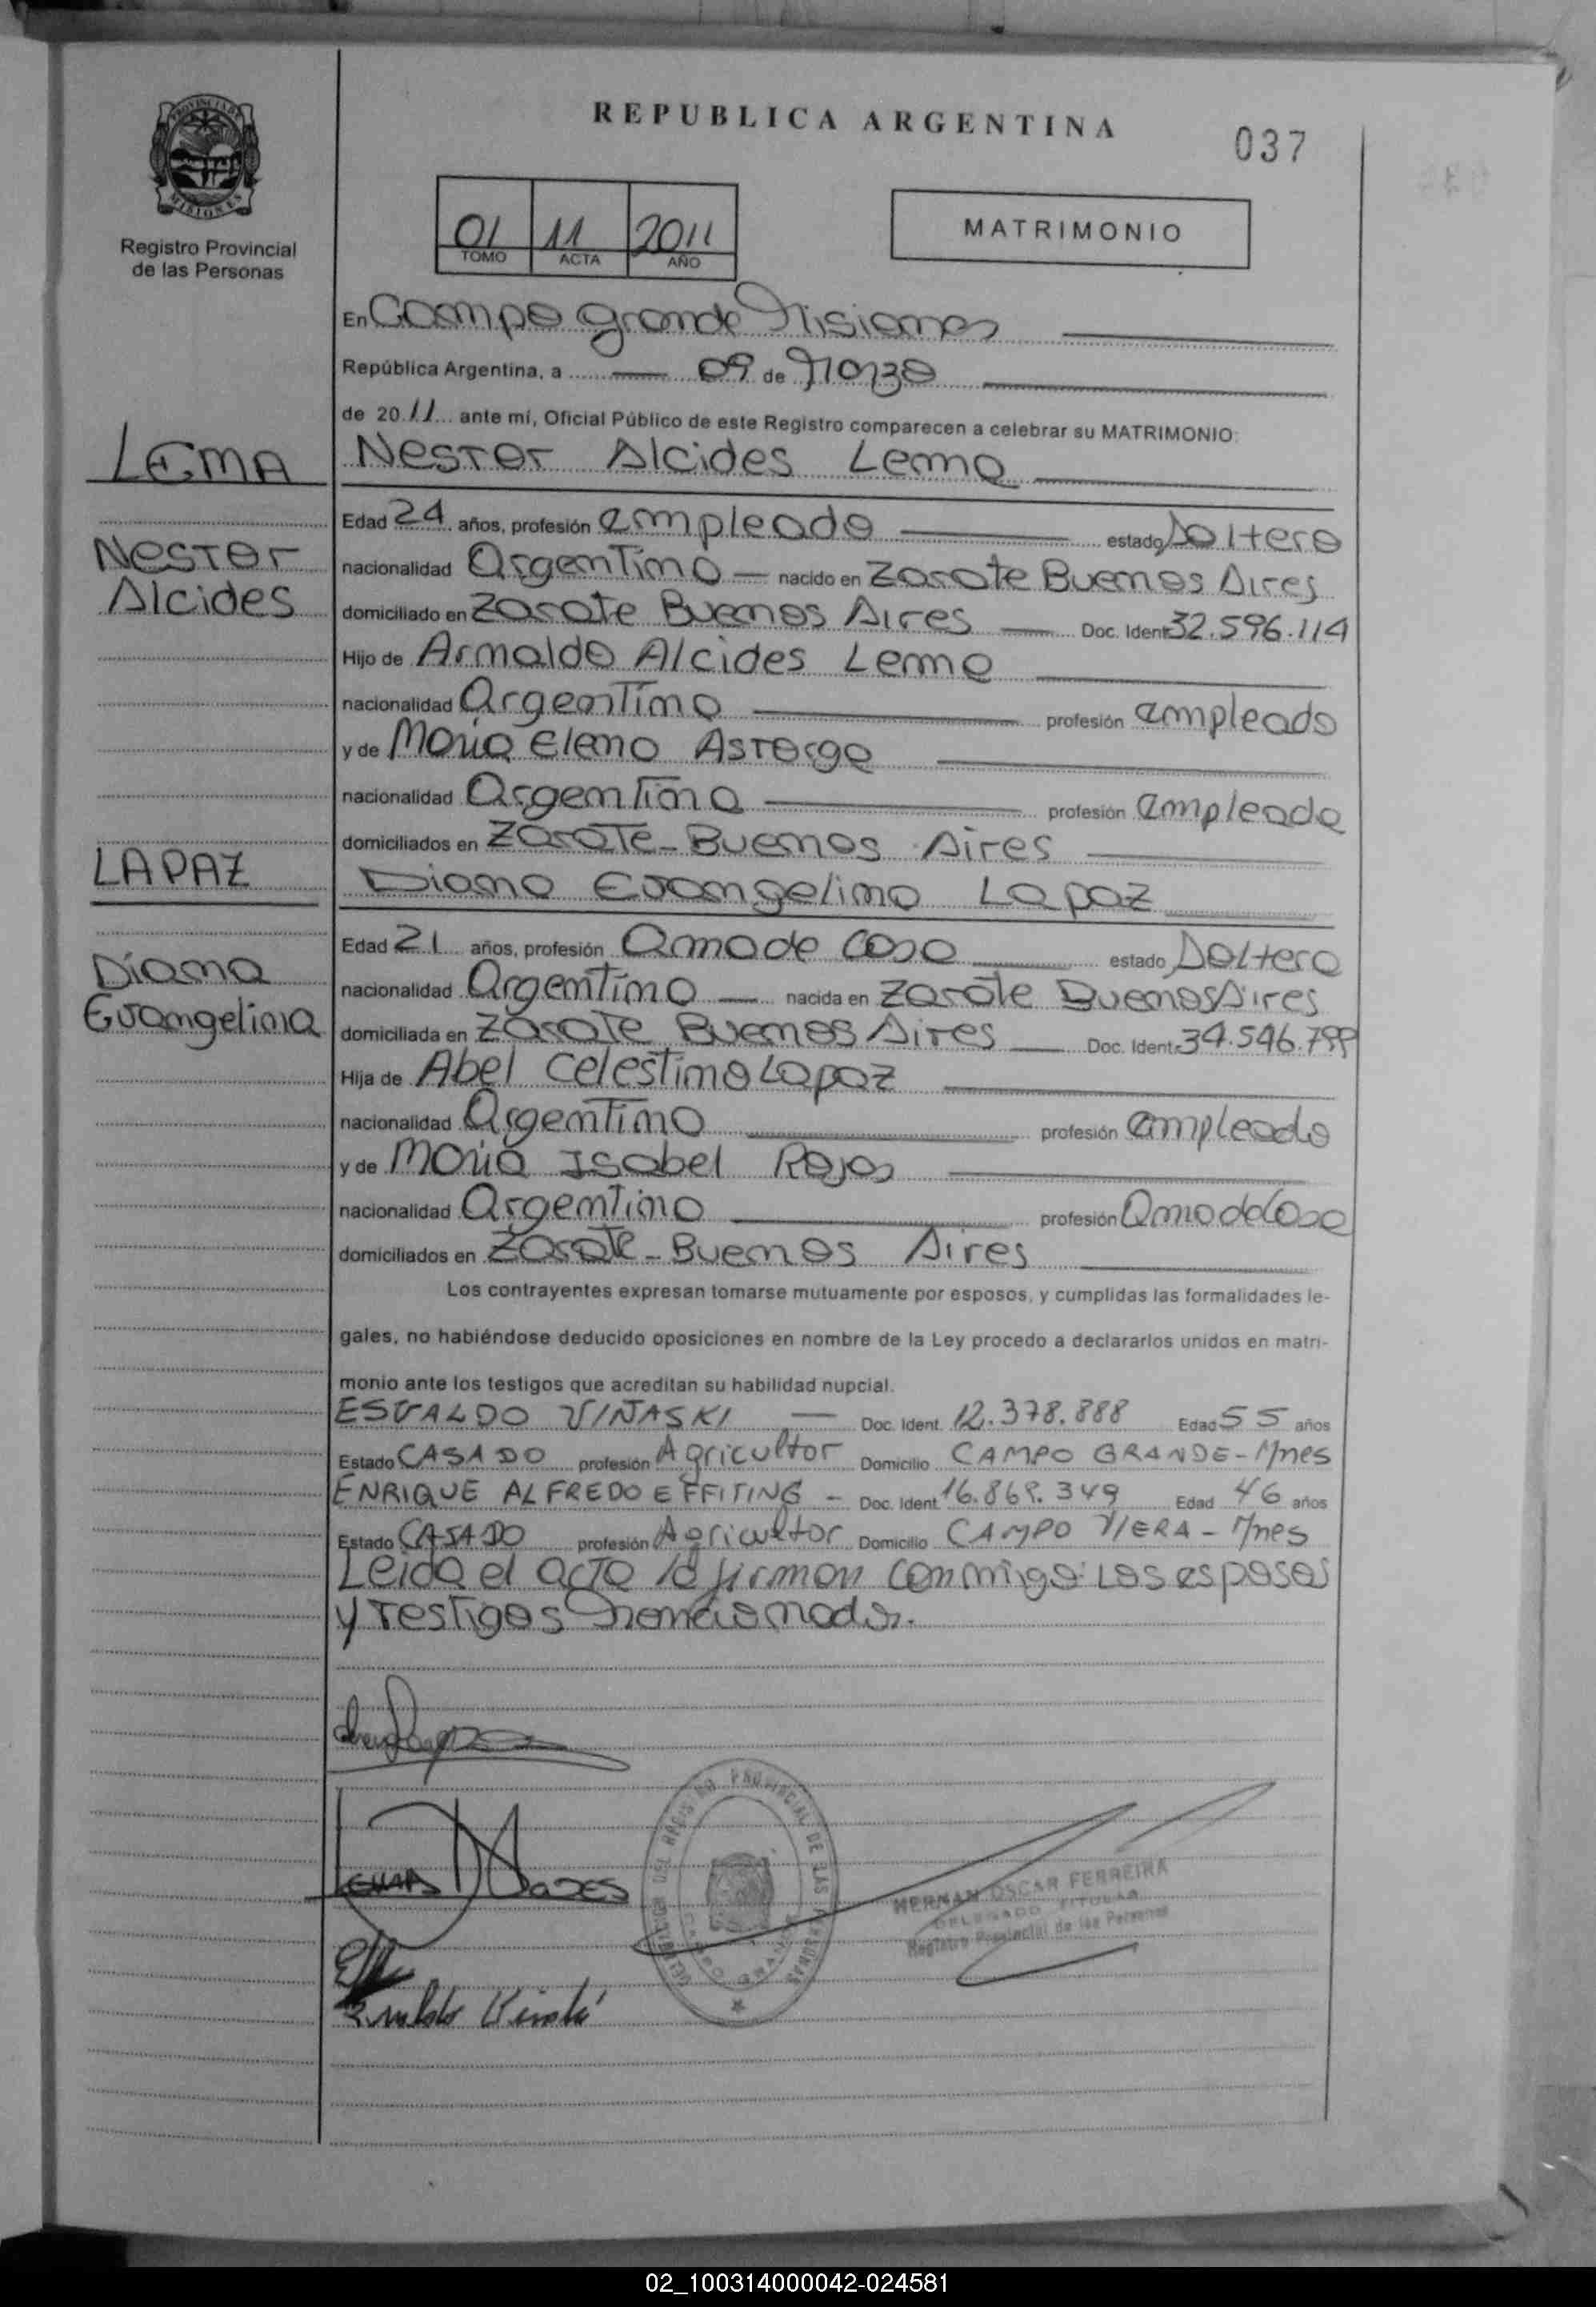 REPUBLICA ARGENTINA
037
PROVINCIA DE
MISIONES
Registro Provincial
de las Personas
01 11 2011
TOMO ACTA AÑO
MATRIMONIO
En Campo Grande Misiones
República Argentina, a 09 de Marzo
de 2011 ante mí, Oficial Público de este Registro comparecen a celebrar su MATRIMONIO:
LEMA
Nestor Alcides Lema
Edad 24 años, profesión empleado estado Soltero
Nestor
Alcides
nacionalidad Argentino nacido en Zarate Buenos Aires
domiciliado en Zarate Buenos Aires Doc. Ident. 32.596.114
Hijo de Arnaldo Alcides Lema
nacionalidad Argentino profesión empleado
y de Maria Elena Astorga
nacionalidad Argentina profesión empleada
domiciliados en Zarate - Buenos Aires
LAPAZ
Diana Evangelina Lapaz
Edad 21 años, profesión Ama de casa estado Soltera
Diana
Evangelina
nacionalidad Argentina nacida en Zarate Buenos Aires
domiciliada en Zarate Buenos Aires Doc. Ident. 34.546.799
Hija de Abel Celestino Lapaz
nacionalidad Argentino profesión empleado
y de Maria Isabel Rojas
nacionalidad Argentina profesión Ama de Casa
domiciliados en Zarate - Buenos Aires
Los contrayentes expresan tomarse mutuamente por esposos, y cumplidas las formalidades le-
gales, no habiéndose deducido oposiciones en nombre de la Ley procedo a declararlos unidos en matri-
monio ante los testigos que acreditan su habilidad nupcial.
ESVALDO VINASKI — Doc. Ident. 12.378.888 Edad 55 años
Estado CASADO profesión Agricultor Domicilio CAMPO GRANDE - Mnes
ENRIQUE ALFREDO EFFITING - Doc. Ident. 16.869.349 Edad 46 años
Estado CASADO profesión Agricultor Domicilio CAMPO VIERA - Mnes
Leida el acta la firman conmigo: Los esposos
y testigos mencionados.
HERNAN OSCAR FERREIRA
DELEGADO TITULAR
Registro Provincial de las Personas
02_100314000042-024581